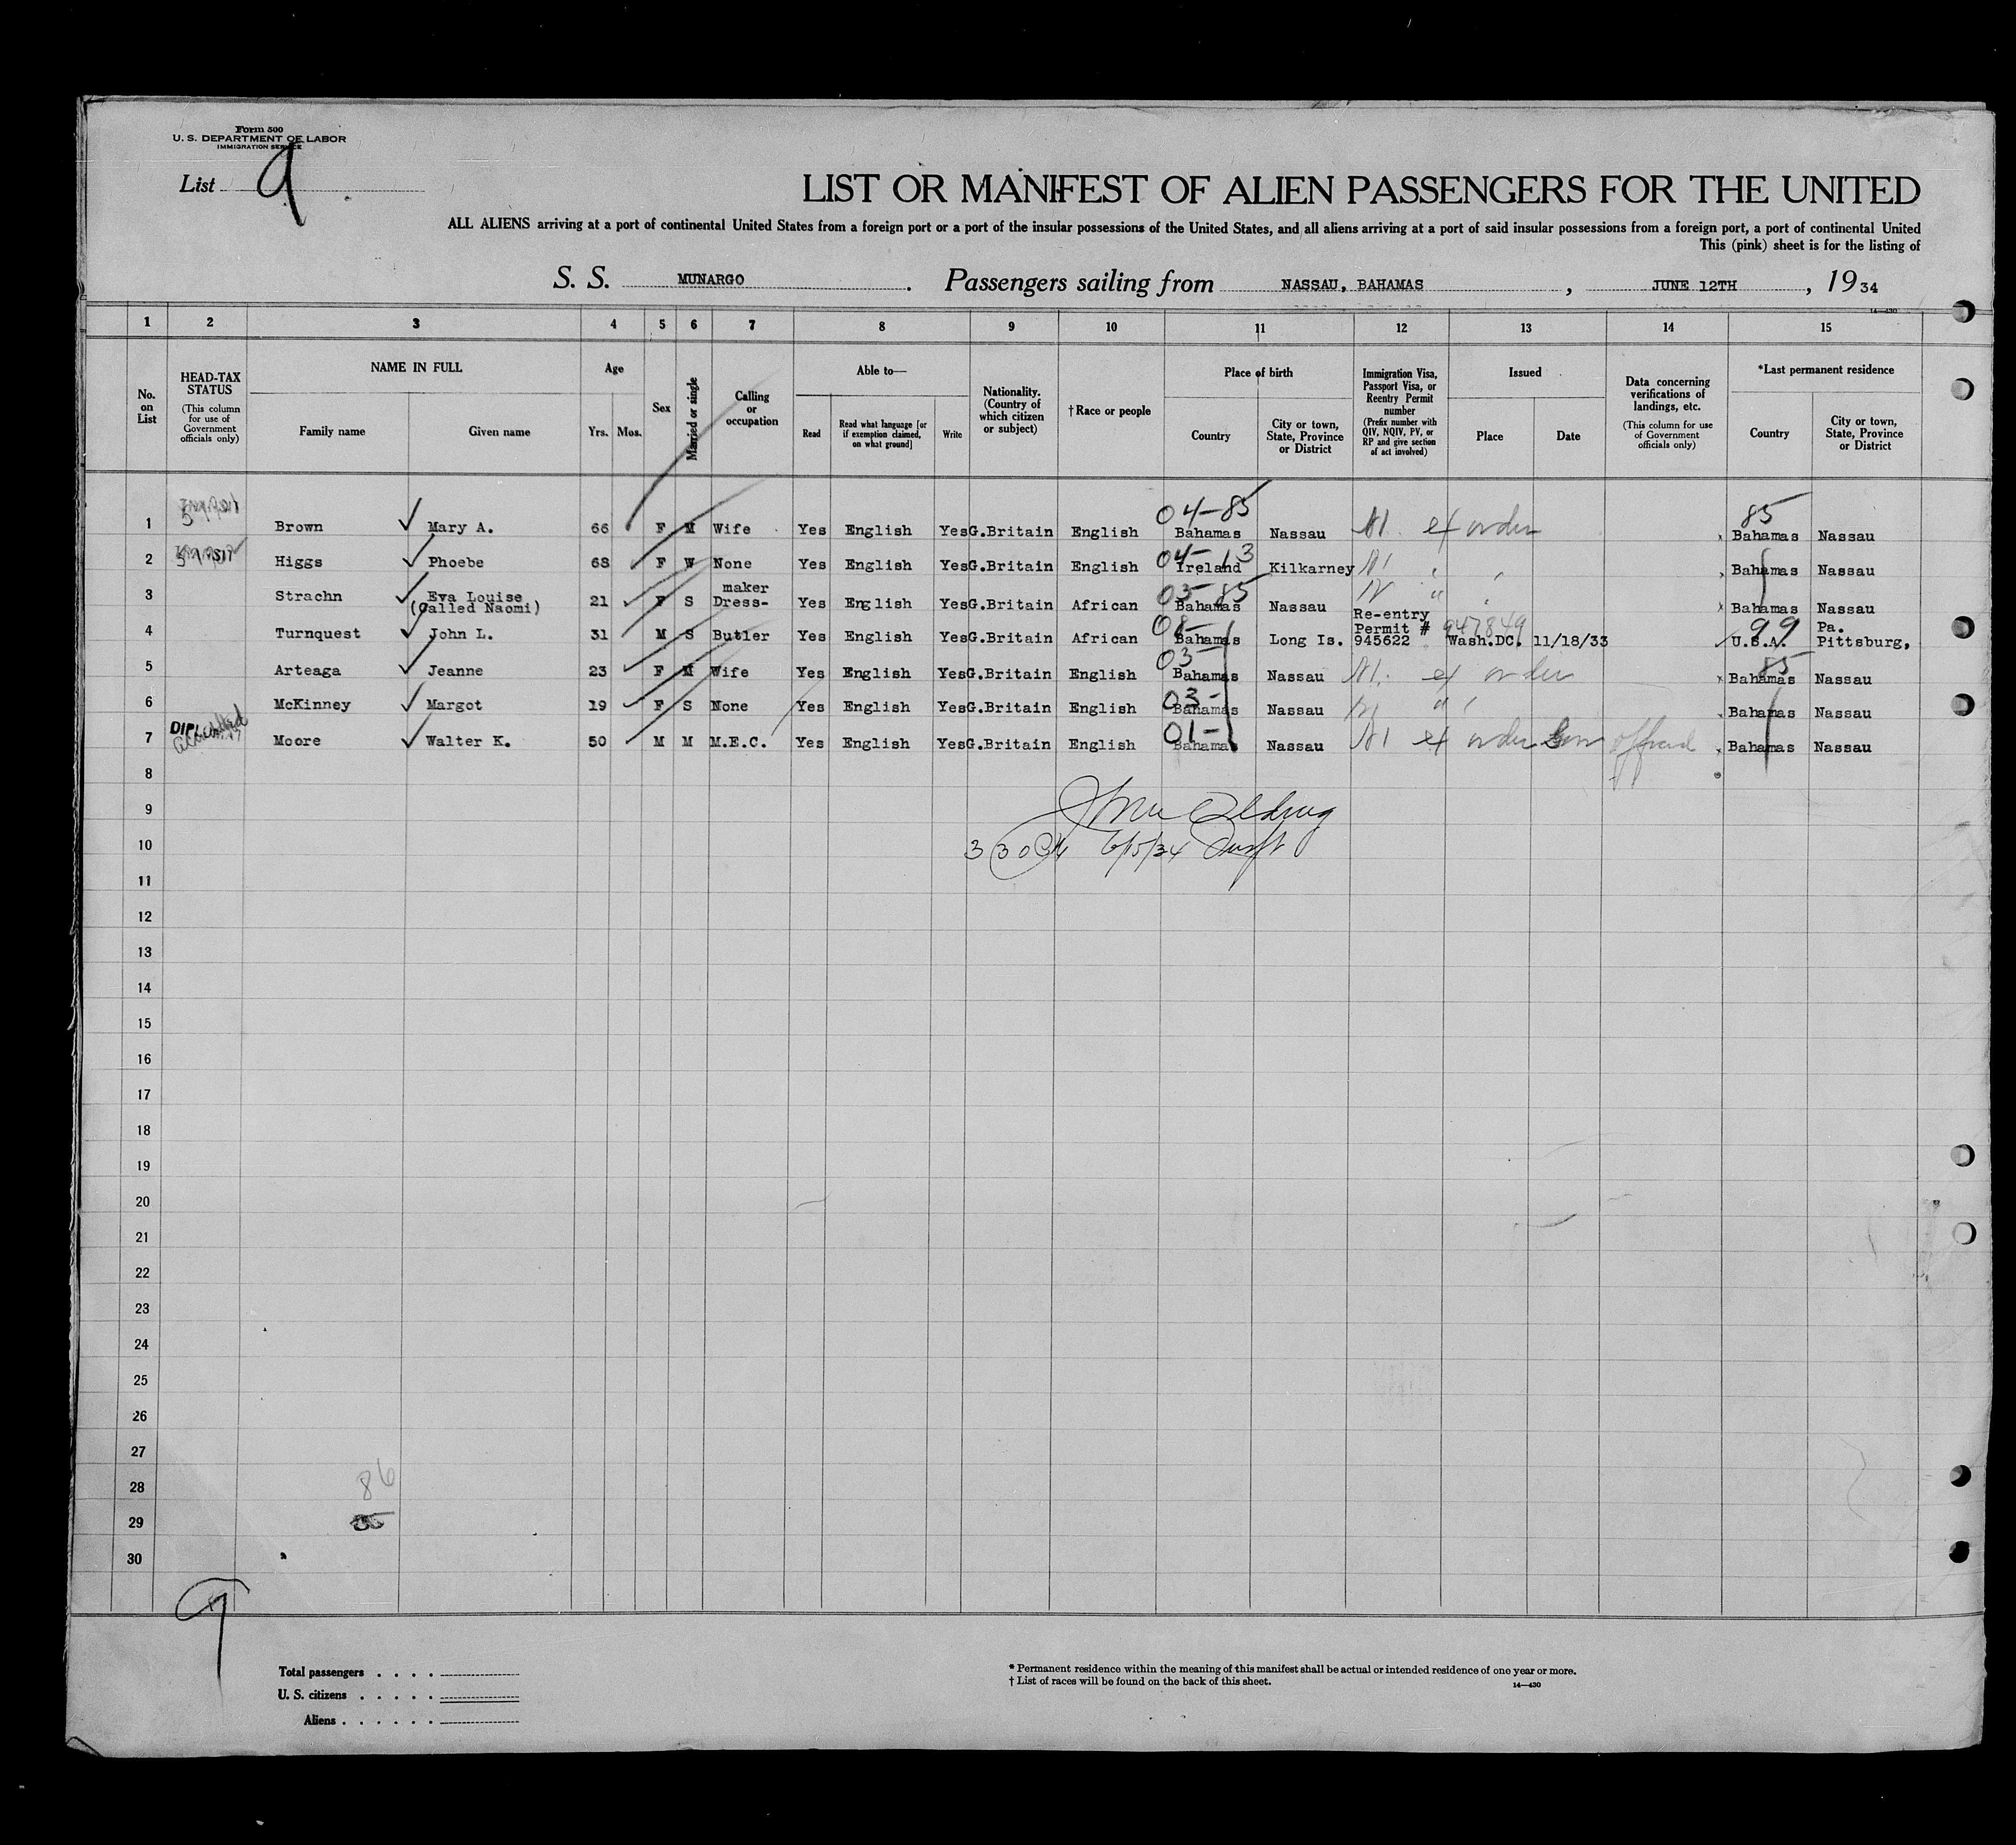 Form 500
U. S. DEPARTMENT OF LABOR
IMMIGRATION SERVICE
List 9
LIST OR MANIFEST OF ALIEN PASSENGERS FOR THE UNITED
ALL ALIENS arriving at a port of continental United States from a foreign port or a port of the insular possessions of the United States, and all aliens arriving at a port of said insular possessions from a foreign port, a port of continental United
This (pink) sheet is for the listing of
S. S. MUNARGO. Passengers sailing from NASSAU, BAHAMAS, JUNE 12TH, 1934
14—430
1 2 3 4 5 6 7 8 9 10 11 12 13 14 15
No. on List
HEAD-TAX STATUS (This column for use of Government officials only)
NAME IN FULL
Family name Given name
Age
Yrs. Mos.
Sex
Married or single
Calling or occupation
Able to—
Read
Read what language [or if exemption claimed, on what ground]
Write
Nationality. (Country of which citizen or subject)
†Race or people
Place of birth
Country
City or town, State, Province or District
Immigration Visa, Passport Visa, or Reentry Permit number (Prefix number with QIV, NQIV, PV, or RP and give section of act involved)
Issued
Place Date
Data concerning verifications of landings, etc. (This column for use of Government officials only)
*Last permanent residence
Country
City or town, State, Province or District
04-85 85
1 Brown Mary A. 66 F M Wife Yes English Yes G.Britain English Bahamas Nassau ex order Bahamas Nassau
04-13
2 Higgs Phoebe 68 F W None Yes English Yes G.Britain English Ireland Kilkarney " " Bahamas Nassau
maker 03-85
3 Strachn Eva Louise (Called Naomi) 21 F S Dress- Yes English Yes G.Britain African Bahamas Nassau " " Bahamas Nassau
Re-entry
Permit # 947849 99 Pa.
4 Turnquest John L. 31 M S Butler Yes English Yes G.Britain African Bahamas Long Is. 945622 Wash.DC. 11/18/33 U.S.A. Pittsburg,
03- 85
5 Arteaga Jeanne 23 F M Wife Yes English Yes G.Britain English Bahamas Nassau ex order Bahamas Nassau
03-
6 McKinney Margot 19 F S None Yes English Yes G.Britain English Bahamas Nassau " " Bahamas Nassau
DIPL. 01-
7 Moore Walter K. 50 M M M.E.C. Yes English Yes G.Britain English Bahamas Nassau ex order Gov official Bahamas Nassau
8
9
10 6/15/34
11
12
13
14
15
16
17
18
19
20
21
22
23
24
25
26
27
28 86
29
30
9
Total passengers . . . .
U. S. citizens . . . . .
Aliens . . . . . .
* Permanent residence within the meaning of this manifest shall be actual or intended residence of one year or more.
† List of races will be found on the back of this sheet.
14—430